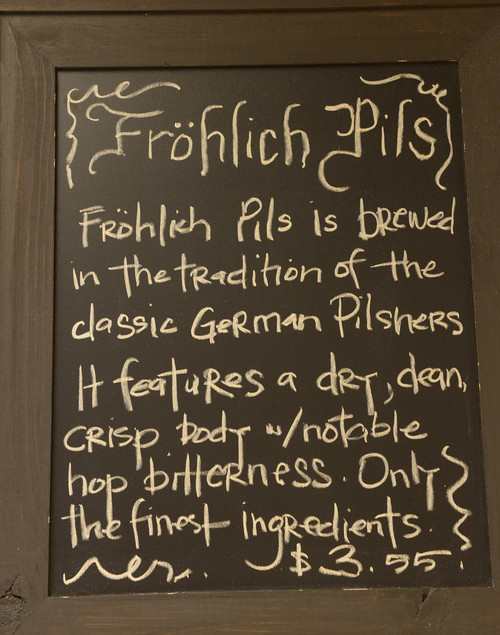 Fröhlich Pils
Fröhlich Pils is brewed
in the tradition of the
classic German Pilsners
It features a dry, clean,
crisp body w/notable
hop bitterness. Only
the finest ingredients.
$3.55.